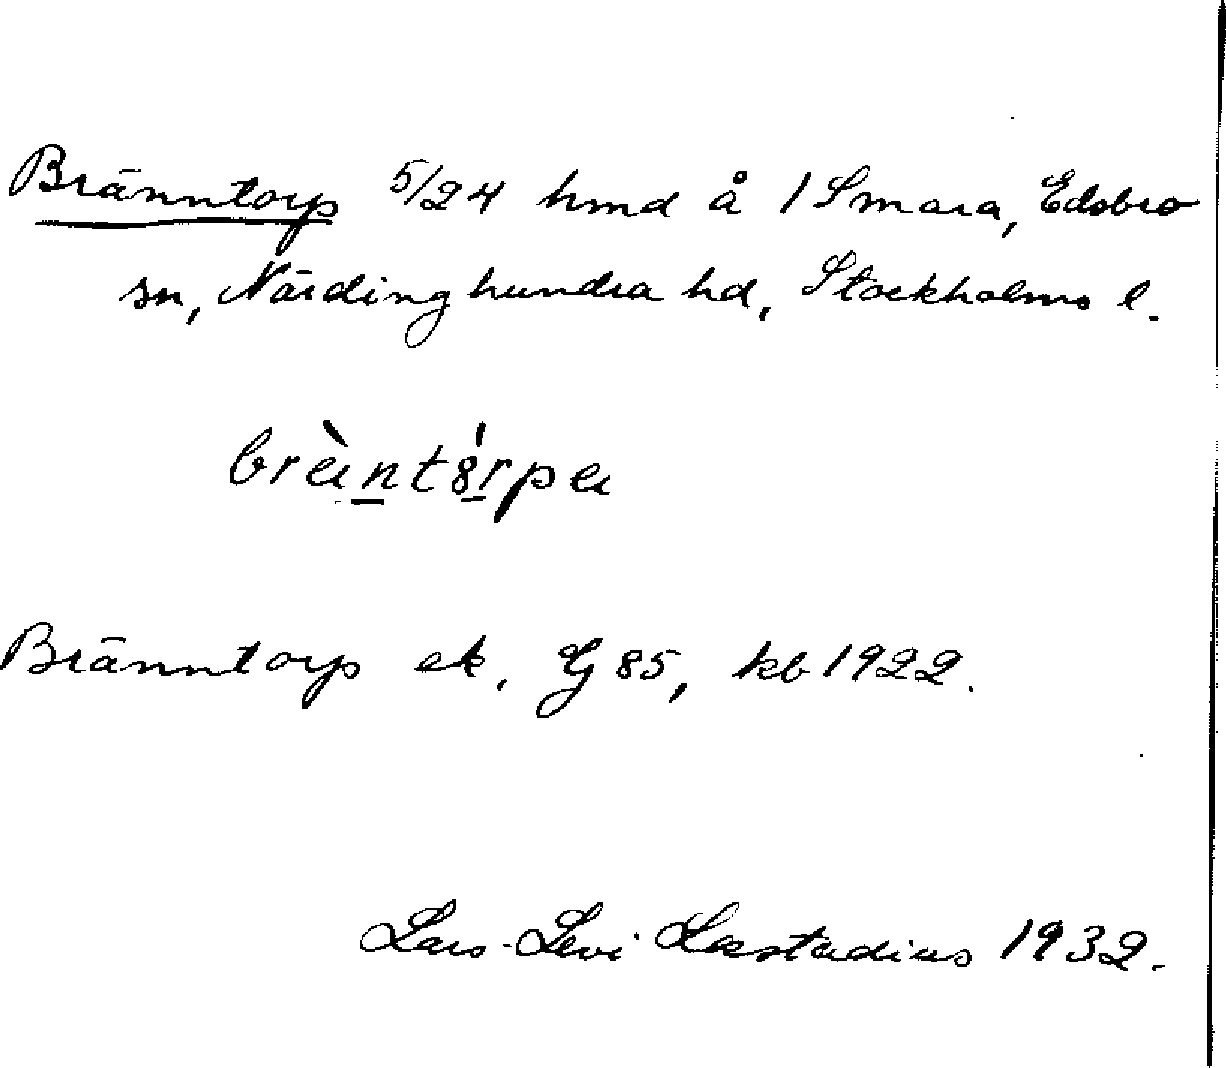 Bränntorp 5/24 hmd å 1 Smara, Edsbro
sn, Närdinghundra hd, Stockholms l.
brànt8́rpa
Bränntorp ek. G 85, kb 1922.
Lars-Levi Læstadius 1932.